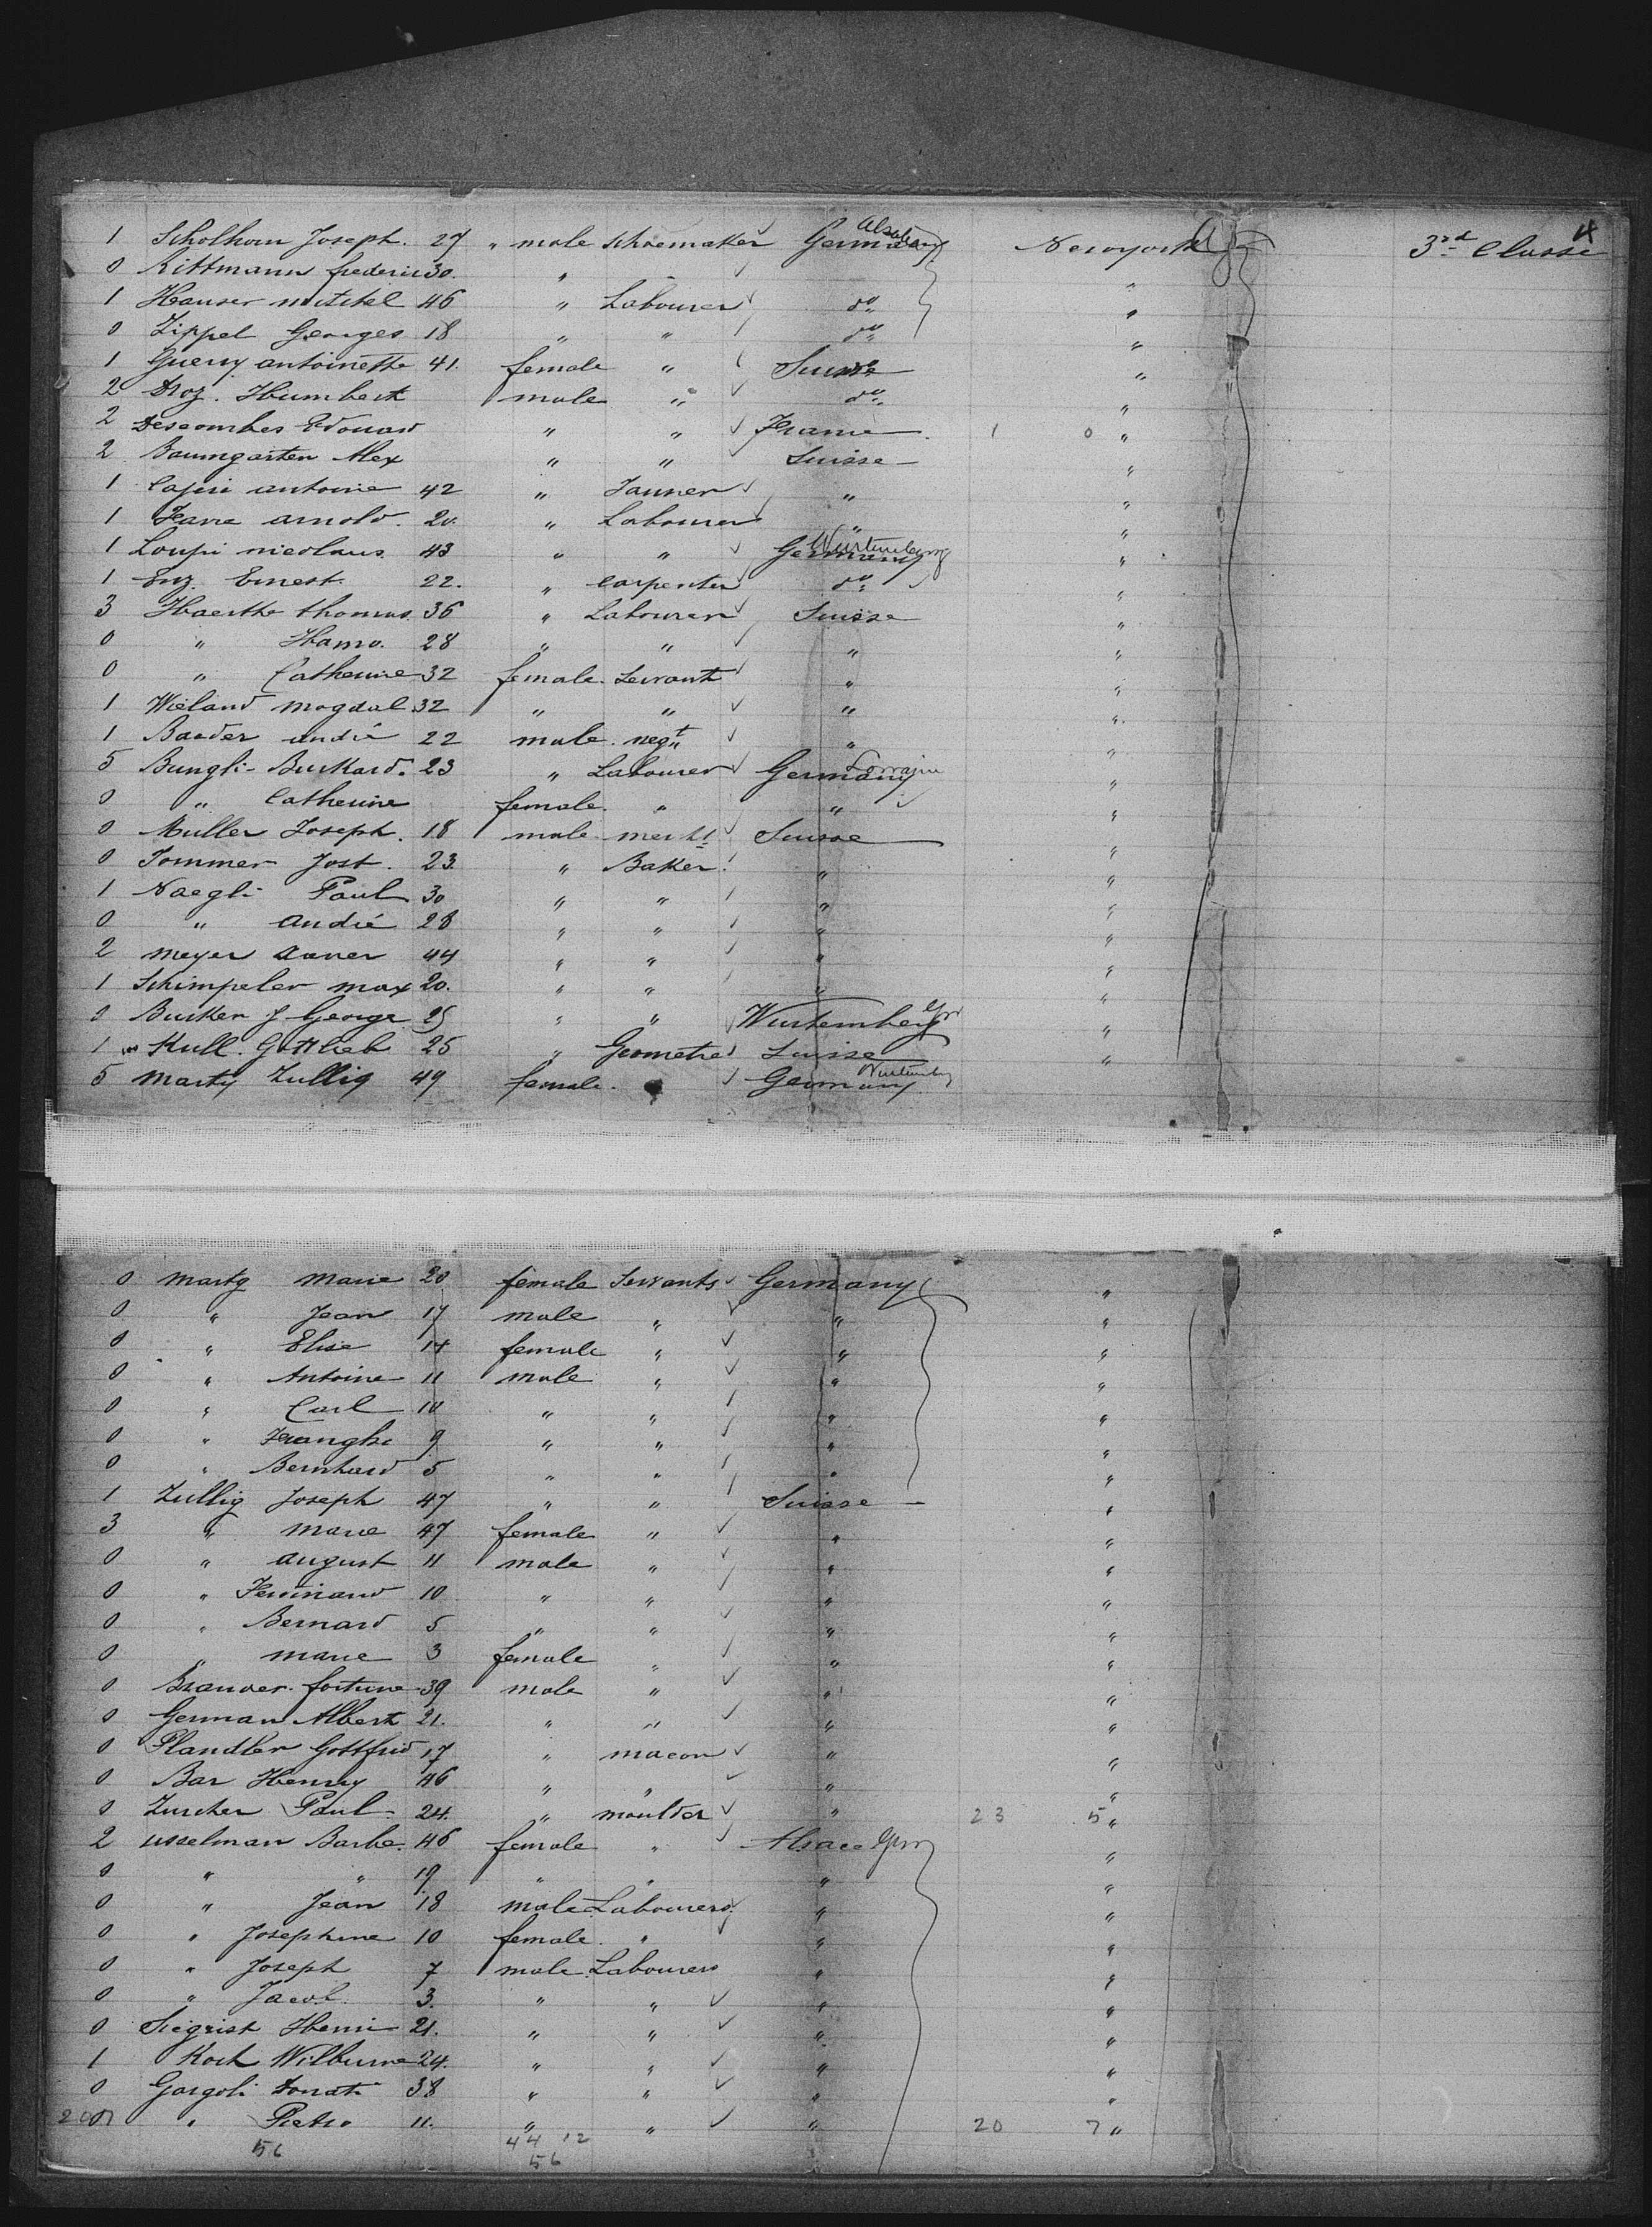 1 Scholhorn Joseph. 27 " male schoemaker Germany Alsatian Newyork 3rd Classe
0 Rittmann frederic 30. " "
1 Hauser mitchel 46 " Labourer do "
0 Zippel Georges 18 " " do "
1 Guerry antoinette 41. female " Suisse "
2 Droz. Humbert male " do "
2 Descombes Edouard " " France 1 0 "
2 Baumgarten Alex " " Suisse "
1 antoine 42 " Tanner " "
1 arnold. 20. " Labourer " "
1 Loupi nicolaus 43 " " Germany Wurtemberg "
1 Enz Ernest 22. " carpenter do "
3 Haerthe thomas 36 " Labourer Suisse "
0 " 28 " " " "
0 " Catherine 32 female Servant " "
1 Wieland Magdal 32 " " " "
1 Baader andré 22 male negt " "
5 Bungli Burkard. 23 " Labourer Germany Lorraine "
0 " Catherine female " " "
0 Muller Joseph. 18 male Suisse "
0 Tommer Jost. 23. " Baker " "
1 Naegli Paul 30 " " " "
0 " André 28 " " " "
2 Meyer 44 " " " "
1 Schimpeler max 20. " " " "
0 Burker J George 25 " " Wurtemberg Gm "
1 Kull. Gottlieb 25 " Geometre Suisse "
5 Marty Zullig 49 female. " Germany Wurtemberg
0 Marty Marie 20 female Servants Germany "
0 " Jean 17 male " " "
0 " Elise 14 female " " "
0 " Antoine 11 male " " "
0 " Carl 10 " " " "
0 " 9 " " " "
0 " Bernhard 5 " " " "
1 Zullig Joseph 47 " " Suisse "
3 " Marie 47 female " " "
0 " august 11 male " " "
0 " Ferdinand 10 " " " "
0 " Bernard 5 " " " "
0 " marie 3 female " " "
0 Brander fortune 39 male " " "
0 German Albert 21. " " " "
0 Plandler Gottfried 17 " macon " "
0 Bar Henry 46 " " " "
0 Zurcher Paul 24. " moulder " 23 5 "
2 usselman Barbe. 46 female " Alsace Gm "
0 " " 19 " " " "
0 " Jean 18 male Labourers " "
0 " Josephine 10 female. " " "
0 " Joseph 7 male Labourers " "
0 " Jacob 3. " " " "
0 Siegrist Henri 21. " " " "
1 Koch Wilburne 24. " " " "
0 Gargoli Donati 38 " " " "
0 " Pietro 11. " " " 20 7 "
56 44 12
56